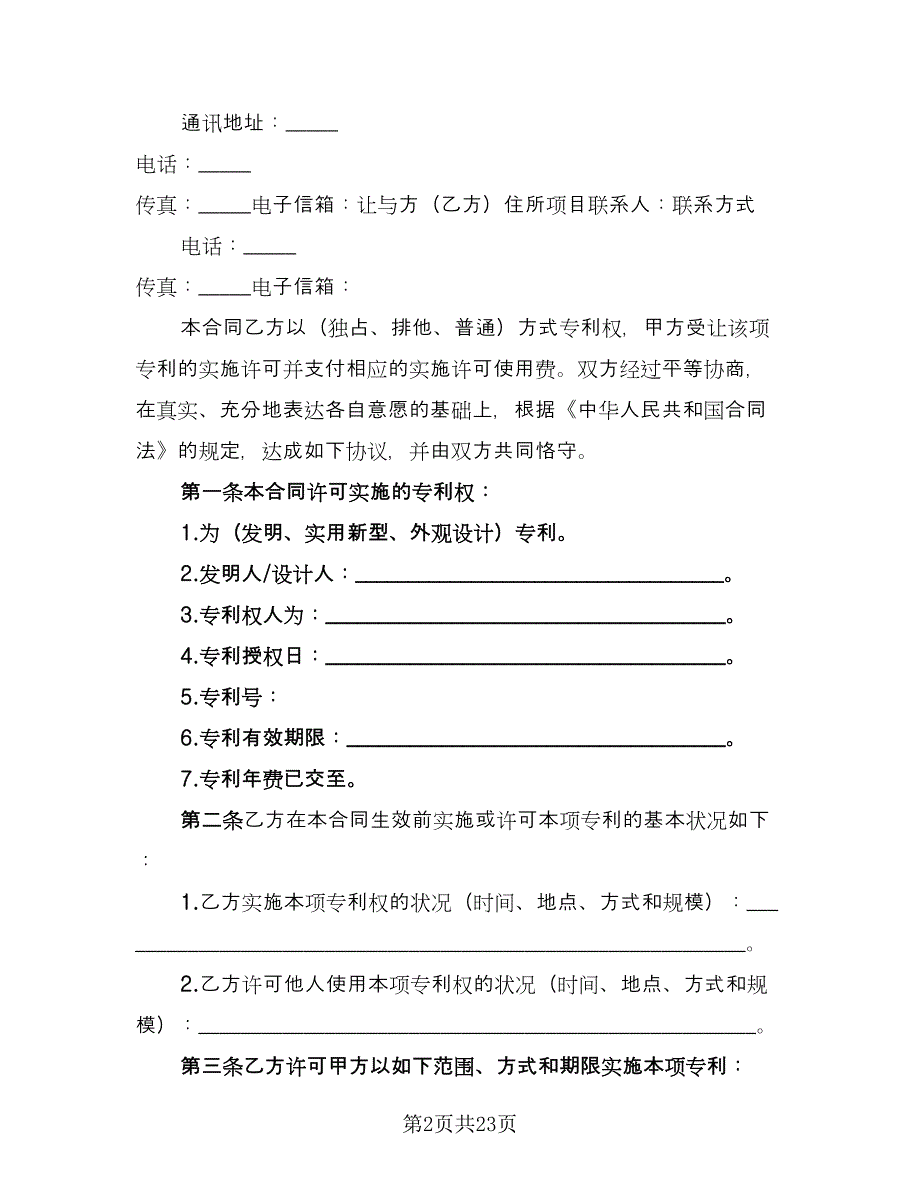 通讯地址：_____
电话：_____
传真：_____电子信箱：让与方（乙方）住所项目联系人：联系方式
电话：_____
传真：_____电子信箱：
本合同乙方以（独占、排他、普通）方式专利权，甲方受让该项
专利的实施许可并支付相应的实施许可使用费。双方经过平等协商，
在真实、充分地表达各自意愿的基础上，根据《中华人民共和国合同
法》的规定，达成如下协议，并由双方共同恪守。
第一条本合同许可实施的专利权：
1.为（发明、实用新型、外观设计）专利。
2.发明人/设计人：___________________________________。
3.专利权人为：______________________________________。
4.专利授权日：______________________________________。
5.专利号：
6.专利有效期限：____________________________________。
7.专利年费已交至。
第二条乙方在本合同生效前实施或许可本项专利的基本状况如下
：
1.乙方实施本项专利权的状况（时间、地点、方式和规模）：___
__________________________________________________________。
2.乙方许可他人使用本项专利权的状况（时间、地点、方式和规
模）：_____________________________________________________。
第三条乙方许可甲方以如下范围、方式和期限实施本项专利：
第2页共23页